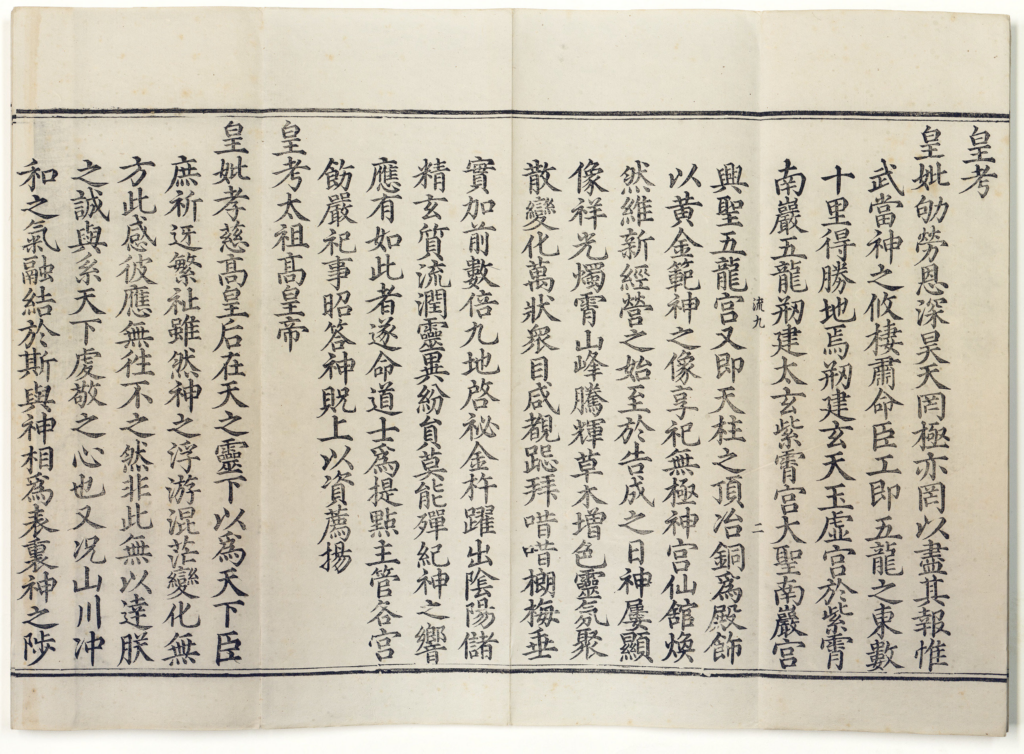 皇考
皇妣劬勞恩深昊天罔極亦罔以盡其報惟
武當神之攸棲肅命臣工即五龍之東數
十里得勝地焉剏建玄天玉虛宮於紫霄
南巖五龍剏建太玄紫霄宮大聖南巖宮
流九 二
興聖五龍宮又即天柱之頂冶銅爲殿飾
以黃金範神之像享祀無極神宮仙舘煥
然維新經營之始至於告成之日神屢顯
像祥光燭霄山峰騰輝草木增色靈氛聚
散變化萬狀衆目咸覩跽拜唶唶榔梅垂
實加前數倍九地啓祕金杵躍出陰陽儲
精玄質流潤靈異紛貟莫能殫紀神之響
應有如此者遂命道士爲提點主管各宮
飭嚴祀事昭答神貺上以資薦揚
皇考太祖髙皇帝
皇妣孝慈髙皇后在天之靈下以爲天下臣
庶祈迓繁祉雖然神之浮游混茫變化無
方此感彼應無徃不之然非此無以達朕
之誠與系天下虔敬之心也又况山川冲
和之氣融結於斯與神相爲表裏神之陟